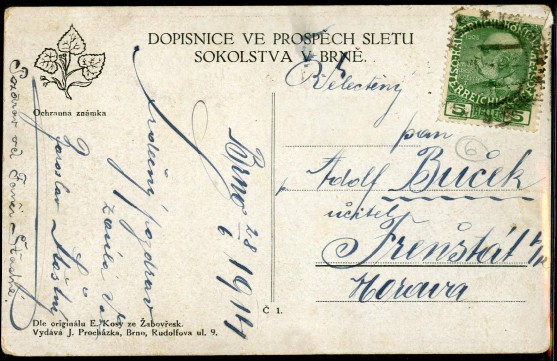 DOPISNICE VE PROSPĚCH SLETU
SOKOLSTVA V BRNĚ.
Ochranná známka
Brno 28/6 1914
srdečný pozdrav
zasílá
Jaroslav
Velectěný
pan
Adolf Buček
učitel
Frenštát
Morava
5 5
Č 1.
Dle originálu E. Kosy ze Žabovřesk.
Vydává J. Procházka, Brno, Rudolfova ul. 9.